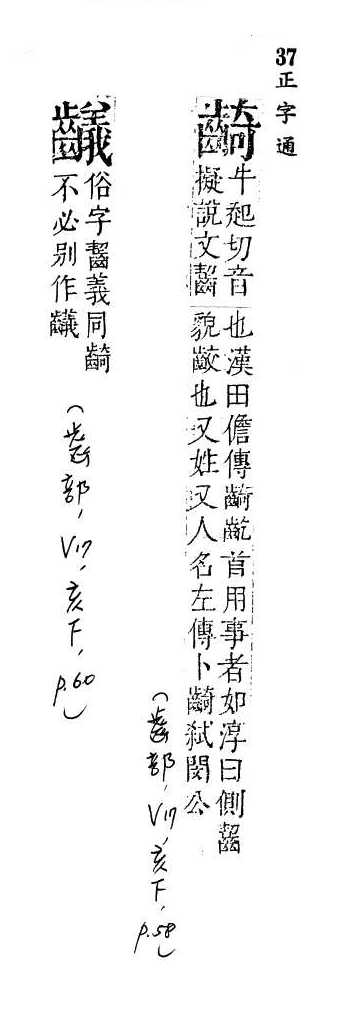 37正字通
齮
牛起切音也漢田儋傳齮齕首用事者如淳曰側齧
擬說文齧貌齩也又姓又人名左傳卜齮弒閔公
(齒部, V17, 亥下, p.58)
俗字齧義同齮
不必別作
(齒部, V17, 亥下, p.60)